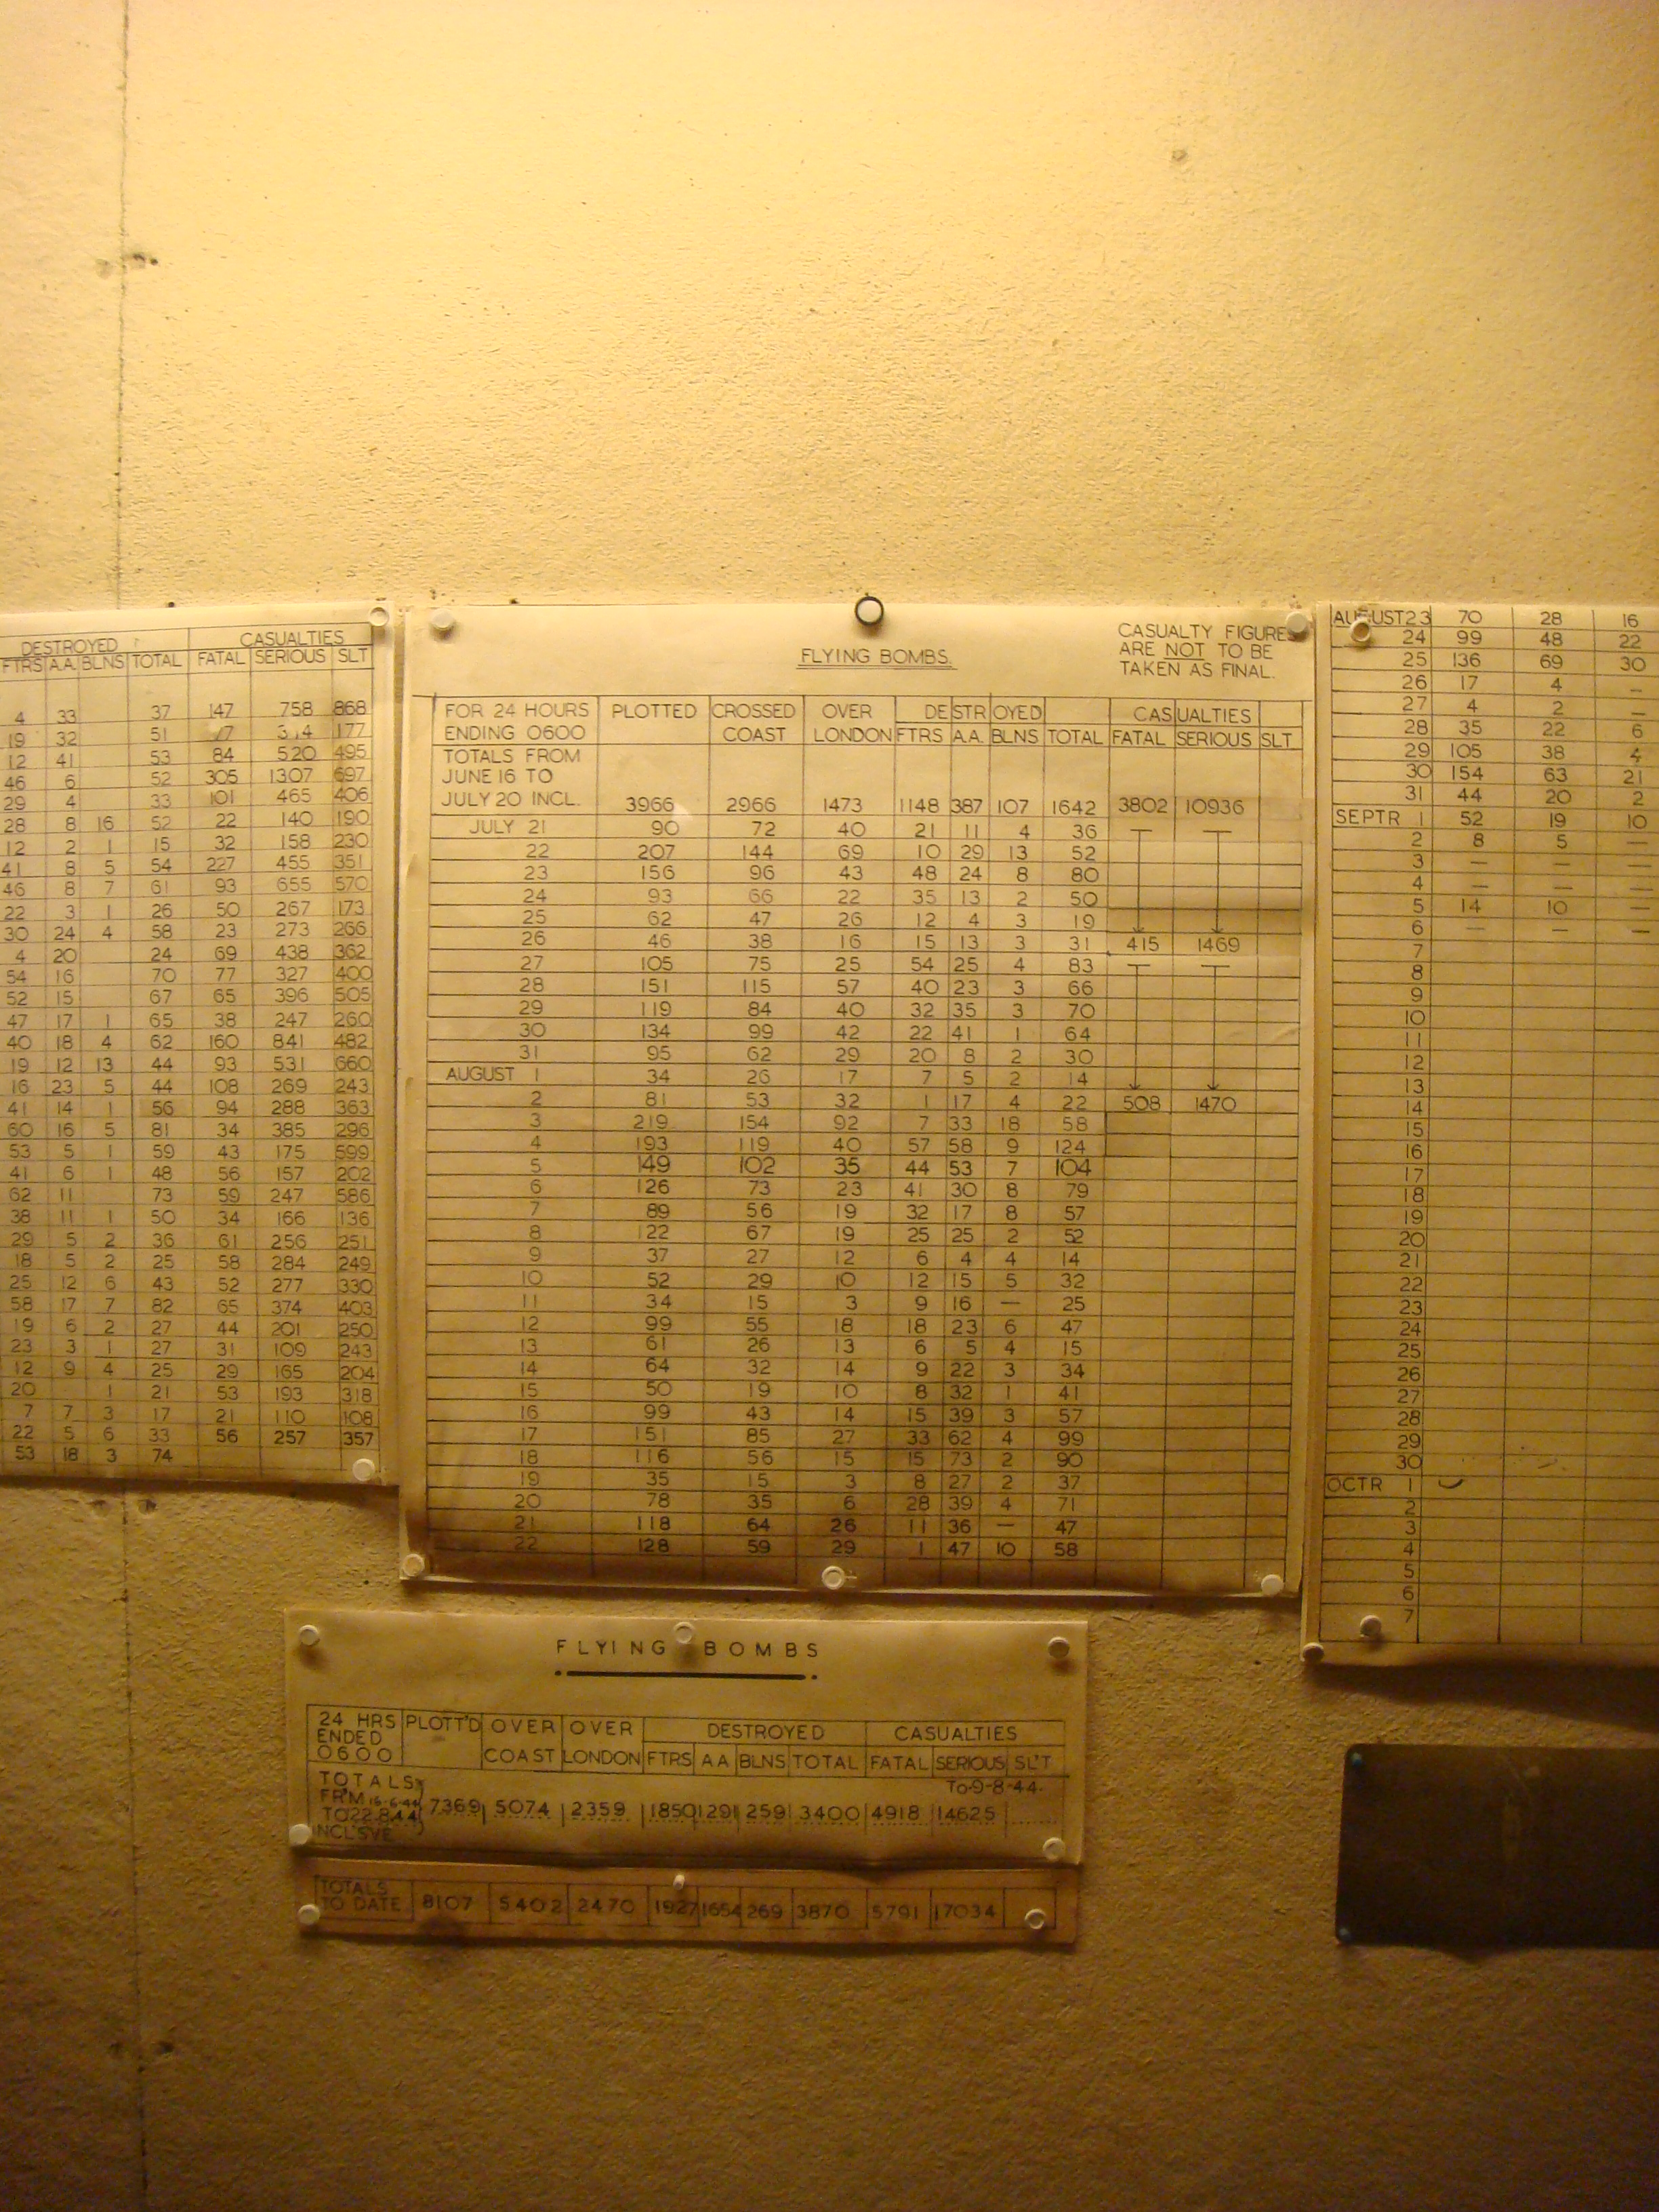 DESTROYED CASUALTIES
FTRS A.A. BLNS TOTAL FATAL SERIOUS SLT
4 33 37 147 758 868
19 32 51 177
12 41 53 84 520 495
46 6 52 305 1307 697
29 4 33 101 465 406
28 8 16 52 22 140 190
12 2 1 15 32 158 230
41 8 5 54 227 455 351
46 8 7 61 93 655 570
22 3 1 26 50 267 173
30 24 4 58 23 273 266
4 20 24 69 438 362
54 16 70 77 327 400
52 15 67 65 396 505
47 17 1 65 38 247 260
40 18 4 62 160 841 482
19 12 13 44 93 531 660
16 23 5 44 108 269 243
41 14 1 56 94 288 363
60 16 5 81 34 385 296
53 5 1 59 43 175 599
41 6 1 48 56 157 202
62 11 73 59 247 586
38 11 1 50 34 166 136
29 5 2 36 61 256 251
18 5 2 25 58 284 249
25 12 6 43 52 277 330
58 17 7 82 65 374 403
19 6 2 27 44 201 250
23 3 1 27 31 109 243
12 9 4 25 29 165 204
20 1 21 53 193 318
7 7 3 17 21 110 108
22 5 6 33 56 257 357
53 18 3 74
FLYING BOMBS.
CASUALTY FIGURES
ARE NOT TO BE
TAKEN AS FINAL.
FOR 24 HOURS PLOTTED CROSSED OVER DESTROYED CASUALTIES
ENDING 0600 COAST LONDON FTRS A.A. BLNS TOTAL FATAL SERIOUS SLT
TOTALS FROM
JUNE 16 TO
JULY 20 INCL. 3966 2966 1473 1148 387 107 1642 3802 10936
JULY 21 90 72 40 21 11 4 36
22 207 144 69 10 29 13 52
23 156 96 43 48 24 8 80
24 93 66 22 35 13 2 50
25 62 47 26 12 4 3 19
26 46 38 16 15 13 3 31 415 1469
27 105 75 25 54 25 4 83
28 151 115 57 40 23 3 66
29 119 84 40 32 35 3 70
30 134 99 42 22 41 1 64
31 95 62 29 20 8 2 30
AUGUST 1 34 26 17 7 5 2 14
2 81 53 32 1 17 4 22 508 1470
3 219 154 92 7 33 18 58
4 193 119 40 57 58 9 124
5 149 102 35 44 53 7 104
6 126 73 23 41 30 8 79
7 89 56 19 32 17 8 57
8 122 67 19 25 25 2 52
9 37 27 12 6 4 4 14
10 52 29 10 12 15 5 32
11 34 15 3 9 16 — 25
12 99 55 18 18 23 6 47
13 61 26 13 6 5 4 15
14 64 32 14 9 22 3 34
15 50 19 10 8 32 1 41
16 99 43 14 15 39 3 57
17 151 85 27 33 62 4 99
18 116 56 15 15 73 2 90
19 35 15 3 8 27 2 37
20 78 35 6 28 39 4 71
21 118 64 26 11 36 — 47
22 128 59 29 1 47 10 58
AUGUST 23 70 28 16
24 99 48 22
25 136 69 30
26 17 4 —
27 4 2 —
28 35 22 6
29 105 38 4
30 154 63 21
31 44 20 2
SEPTR 1 52 19 10
2 8 5 —
3 — — —
4 — — —
5 14 10 —
6 — — —
7
8
9
10
11
12
13
14
15
16
17
18
19
20
21
22
23
24
25
26
27
28
29
30
OCTR 1
2
3
4
5
6
7
FLYING BOMBS
24 HRS PLOTT'D OVER OVER DESTROYED CASUALTIES
ENDED
0600 COAST LONDON FTRS AA BLNS TOTAL FATAL SERIOUS SL'T
TOTALS To 9-8-44.
FR'M 16-6-44
TO 22.8.44 7369 5074 2359 1850 1291 259 3400 4918 14625
INCL'SVE
TOTALS
TO DATE 8107 5402 2470 1927 1654 269 3870 5791 17034